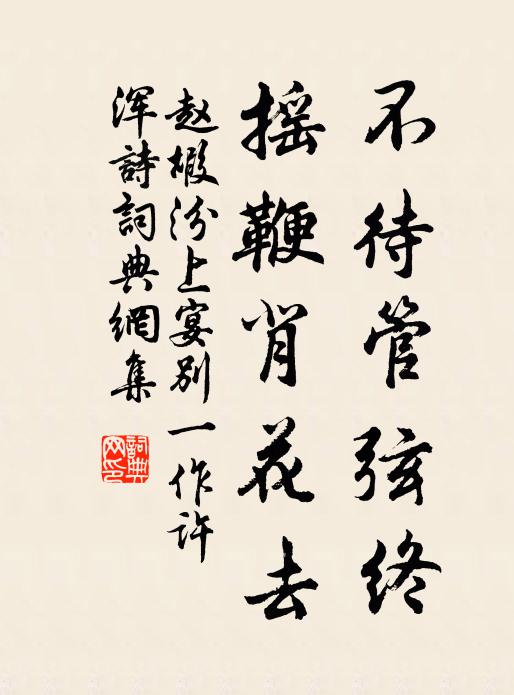 不待管弦终
摇鞭背花去
赵嘏汾上宴别一作许
浑詩詞典網集
詞典网印